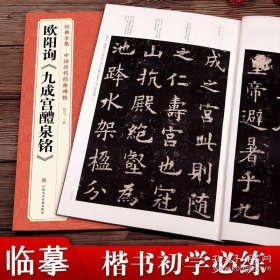 经典全集·中国历代经典碑帖
欧阳询《九成宫醴泉铭》
皇帝避暑乎九
成之宫此則隨
之仁壽宫也冠
山抗殿絶壑為
池跨水架楹分
临摹 楷书初学必练